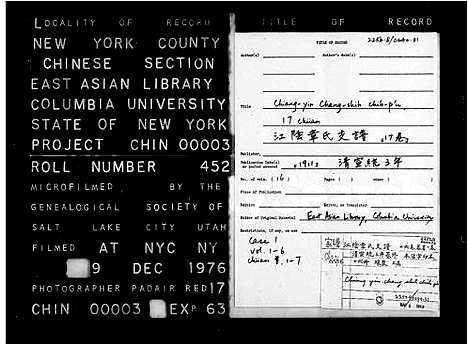 LOCALITY OF RECORD
NEW YORK COUNTY
CHINESE SECTION
EAST ASIAN LIBRARY
COLUMBIA UNIVERSITY
STATE OF NEW YORK
PROJECT CHIN 00003
ROLL NUMBER 452
MICROFILMED BY THE
GENEALOGICAL SOCIETY OF
SALT LAKE CITY UTAH
FILMED AT NYC NY
9 DEC 1976
PHOTOGRAPHER PADAIR RED 17
CHIN 00003 EXP 63
TITLE OF RECORD
TITLE OF RECORD
Author(s)
Author's date(s)
Title
Chiang-yin Chang-shih chih-p'u
17 chüan
江陰章氏支譜 17卷
Publisher
Publication Date(s) or period covered
1911 清宣統3年
No. of vols. (16) Pages ( ) other ( )
Place of Publication
Editor or Translator
Holder of Original Material East Asian Library, Columbia University
Restrictions, if any, on use
Case 1
vol. 1-6
chüan 1-7
江陰章氏支譜
Chiang yin chang shih chih p'u